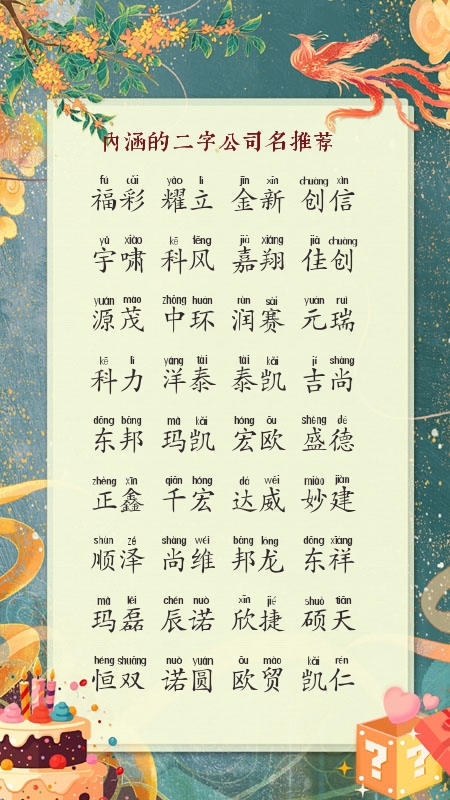 内涵的二字公司名推荐
fú cǎi yào lì jīn xīn chuàng xìn
福彩 耀立 金新 创信
yǔ xiào kē fēng jiā xiáng jiā chuàng
宇啸 科风 嘉翔 佳创
yuán mào zhōng huán rùn sài yuán ruì
源茂 中环 润赛 元瑞
kē lì yáng tài tài kǎi jí shàng
科力 洋泰 泰凯 吉尚
dōng bāng mǎ kǎi hóng ōu shèng dé
东邦 玛凯 宏欧 盛德
zhèng xīn qiān hóng dá wēi miào jiàn
正鑫 千宏 达威 妙建
shùn zé shàng wéi bāng lóng dōng xiáng
顺泽 尚维 邦龙 东祥
mǎ lěi chén nuò xīn jié shuò tiān
玛磊 辰诺 欣捷 硕天
héng shuāng nuò yuán ōu mào kǎi rén
恒双 诺圆 欧贸 凯仁
? ?